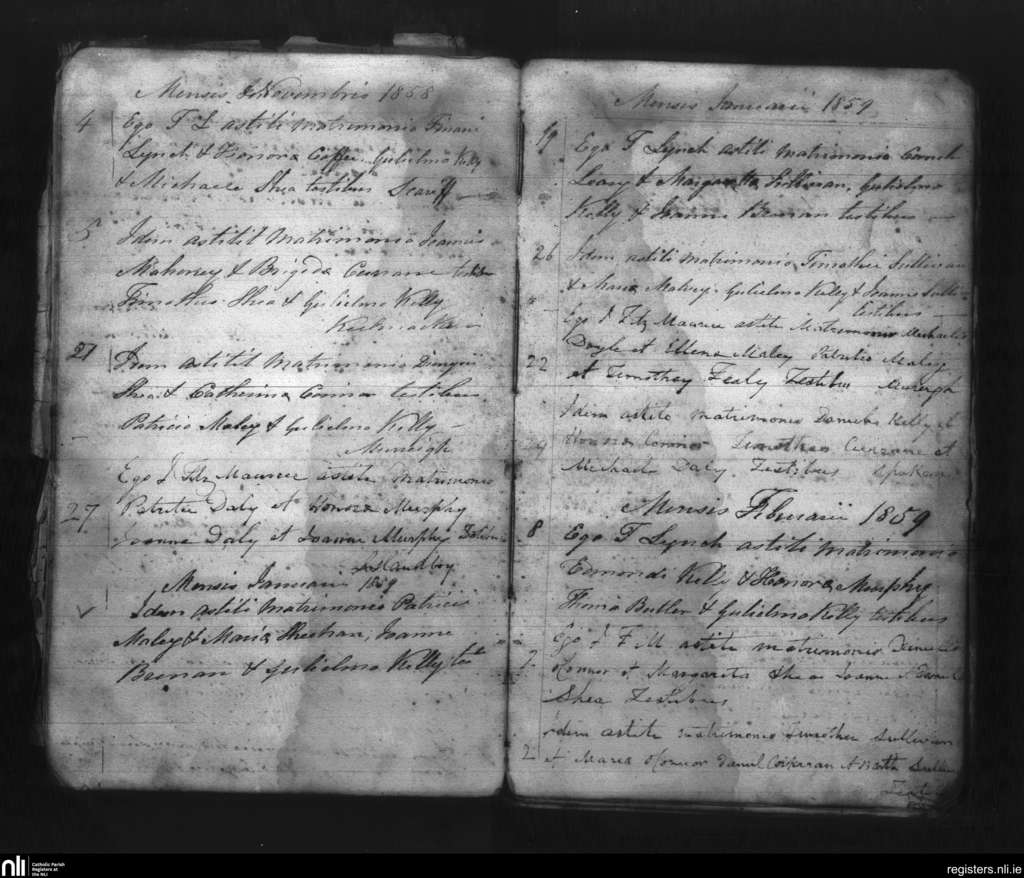 Mensis Novembris 1858
4 Ego T L astiti matrimonio Timani
Lynch & Honora Coffee Gulielmo Kelly
& Michaele Shea testibus Scariff
5 Idem astitit Matrimonio Joannis
Mahoney & Brigida Currane testibus
Timotheo Shea & Gulielmo Kelly
27 Idem astitit matrimonio Dionysii
Shea & Catherina Connor testibus
Patricio Maley & Gulielmo Kelly
Murreigh
Ego J Fitz Maurice astite matrimonio
27 Patritii Daly et Honora Murphy
Joanne Daly et Joanne Murphy Testibus
Mensis Januarii 1859
Idem astiti matrimonio Patricii
Maley & Maria Sheehan, Joanne
Brenan & Gulielmo Kelly test
Mensis Januarii 1859
19 Ego T Lynch astiti matrimonio
Leary & Margaretta Sullivan, Gulielmo
Kelly & Joanne Brenan testibus
26 Idem astiti matrimonio Timothei Sullivan
& Maria Maley. Gulielmo Kelly & Joannis
testibus
Ego J Fitz Maurice astite Matrimonio Michaelis
22 Doyle et Ellena Maley Patritio Maley
et Timothey Zealy Testibus Mureigh
Idem astite matrimonio Danielis Kelly et
29 Honora Connor Timotheo Currane et
Michaele Daly. Testibus
Mensis Februarii 1859
8 Ego T Lynch astiti matrimonio
Edmondi Kelly & Honora Murphy
Thoma Butler & Gulielmo Kelly testibus
Ego J F M astite matrimonio Danielis
OConnor et Margareta Shea Joanne & Daniel
Shea Testibus
Idem astite matrimonio Timothei Sullivan
2 et Maria OConnor Daniel Corkeran et
Test
nli
Catholic Parish
Registers at
the NLI
registers.nli.ie